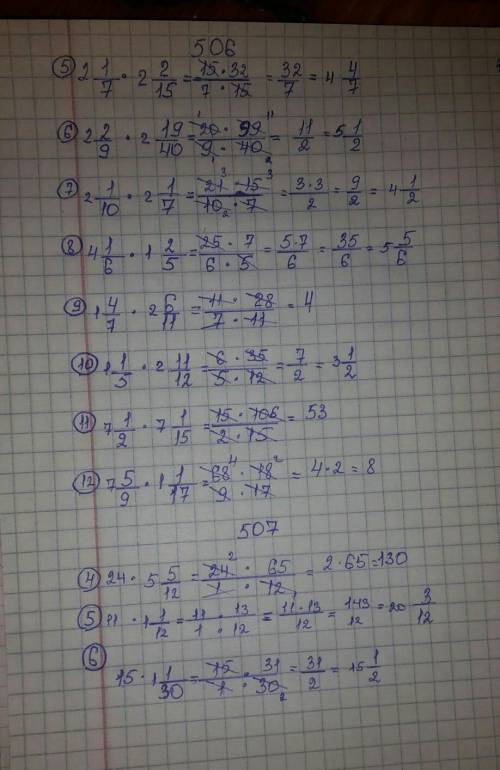 506
⑤ 2 1/7 · 2 2/15 = 15·32/7·15 = 32/7 = 4 4/7
⑥ 2 2/9 · 2 19/40 = 20·99/9·40 = 11/2 = 5 1/2
⑦ 2 1/10 · 2 1/7 = 21·15/10·7 = 3·3/2 = 9/2 = 4 1/2
⑧ 4 1/6 · 1 2/5 = 25·7/6·5 = 5·7/6 = 35/6 = 5 5/6
⑨ 1 4/7 · 2 6/11 = 11·28/7·11 = 4
⑩ 1 1/5 · 2 11/12 = 6·35/5·12 = 7/2 = 3 1/2
⑪ 7 1/2 · 7 1/15 = 15·106/2·15 = 53
⑫ 7 5/9 · 1 1/17 = 68·18/9·17 = 4·2 = 8
507
④ 24 · 5 5/12 = 24·65/1·12 = 2·65=130
⑤ 11 · 1 1/12 = 11/1 · 13/12 = 11·13/12 = 143/12 = 20 3/12
⑥
15 · 1 1/30 = 15/1 · 31/30 = 31/2 = 15 1/2